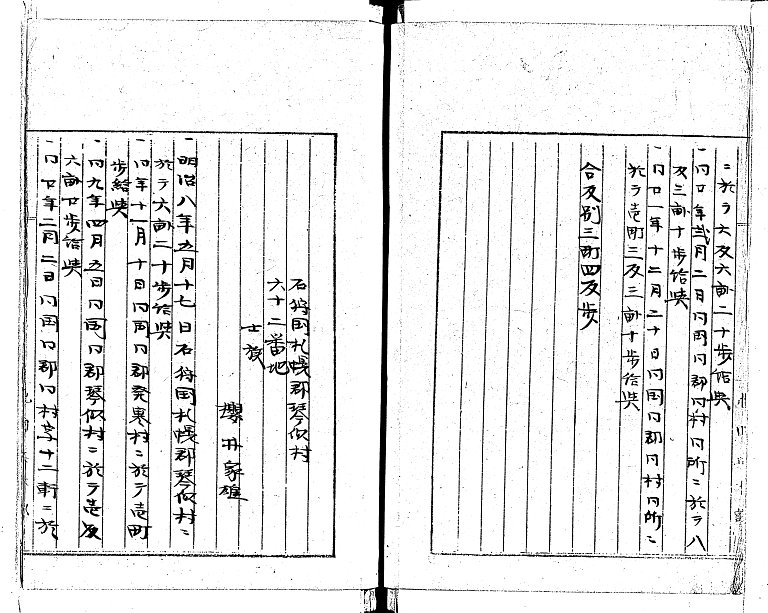 ニ於テ六反六畝二十歩給与
一同廿年弐月二日同国同郡同村同所ニ於テ八
反三畝十歩給与
一同廿一年十二月二十日同国同郡同村同所ニ
於テ壱町三反三畝十歩給与
合反別三町四反歩
石狩国札幌郡琴似村
六十二番地
士族
櫻井家雄
一明治八年五月十七日石狩国札幌郡琴似村ニ
於テ六畝二十歩給与
一同年十一月十日同国同郡発寒村ニ於テ壱町
歩給与
一同九年四月五日同国同郡琴似村ニ於テ壱反
六畝廿歩給与
一同廿年二月二日同国同郡同村字十二軒ニ於